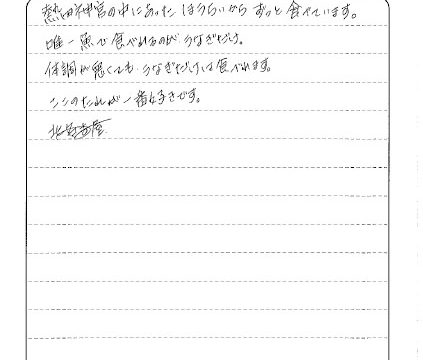 熱田神宮の中にあった ほうらいから ずっと食べています。
唯一魚で食べれるのが、うなぎだけ。
体調が悪くても、うなぎだけは食べれます。
ここのたれが一番好きです。